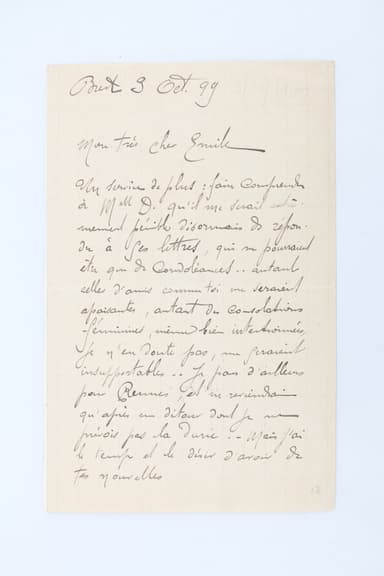 Brest 3 Oct. 99
Mon très cher Emile
Un service de plus : fais comprendre
à Mell D. qu'il me serait
mement pénible désormais de répon-
dre à ses lettres, qui ne pourraient
être que de Condoléances .. autant
celles d'amis comme toi me seraient
apaisantes, autant des consolations
féminines, même bien intentionnées,
je n'en doute pas, me seraient
insupportables .. Je pars d'ailleurs
pour Rennes, et n'en reviendrai
qu'après un détour dont je ne
prévois pas la durée .. Mais j'ai
le temps et le désir d'avoir de
tes nouvelles